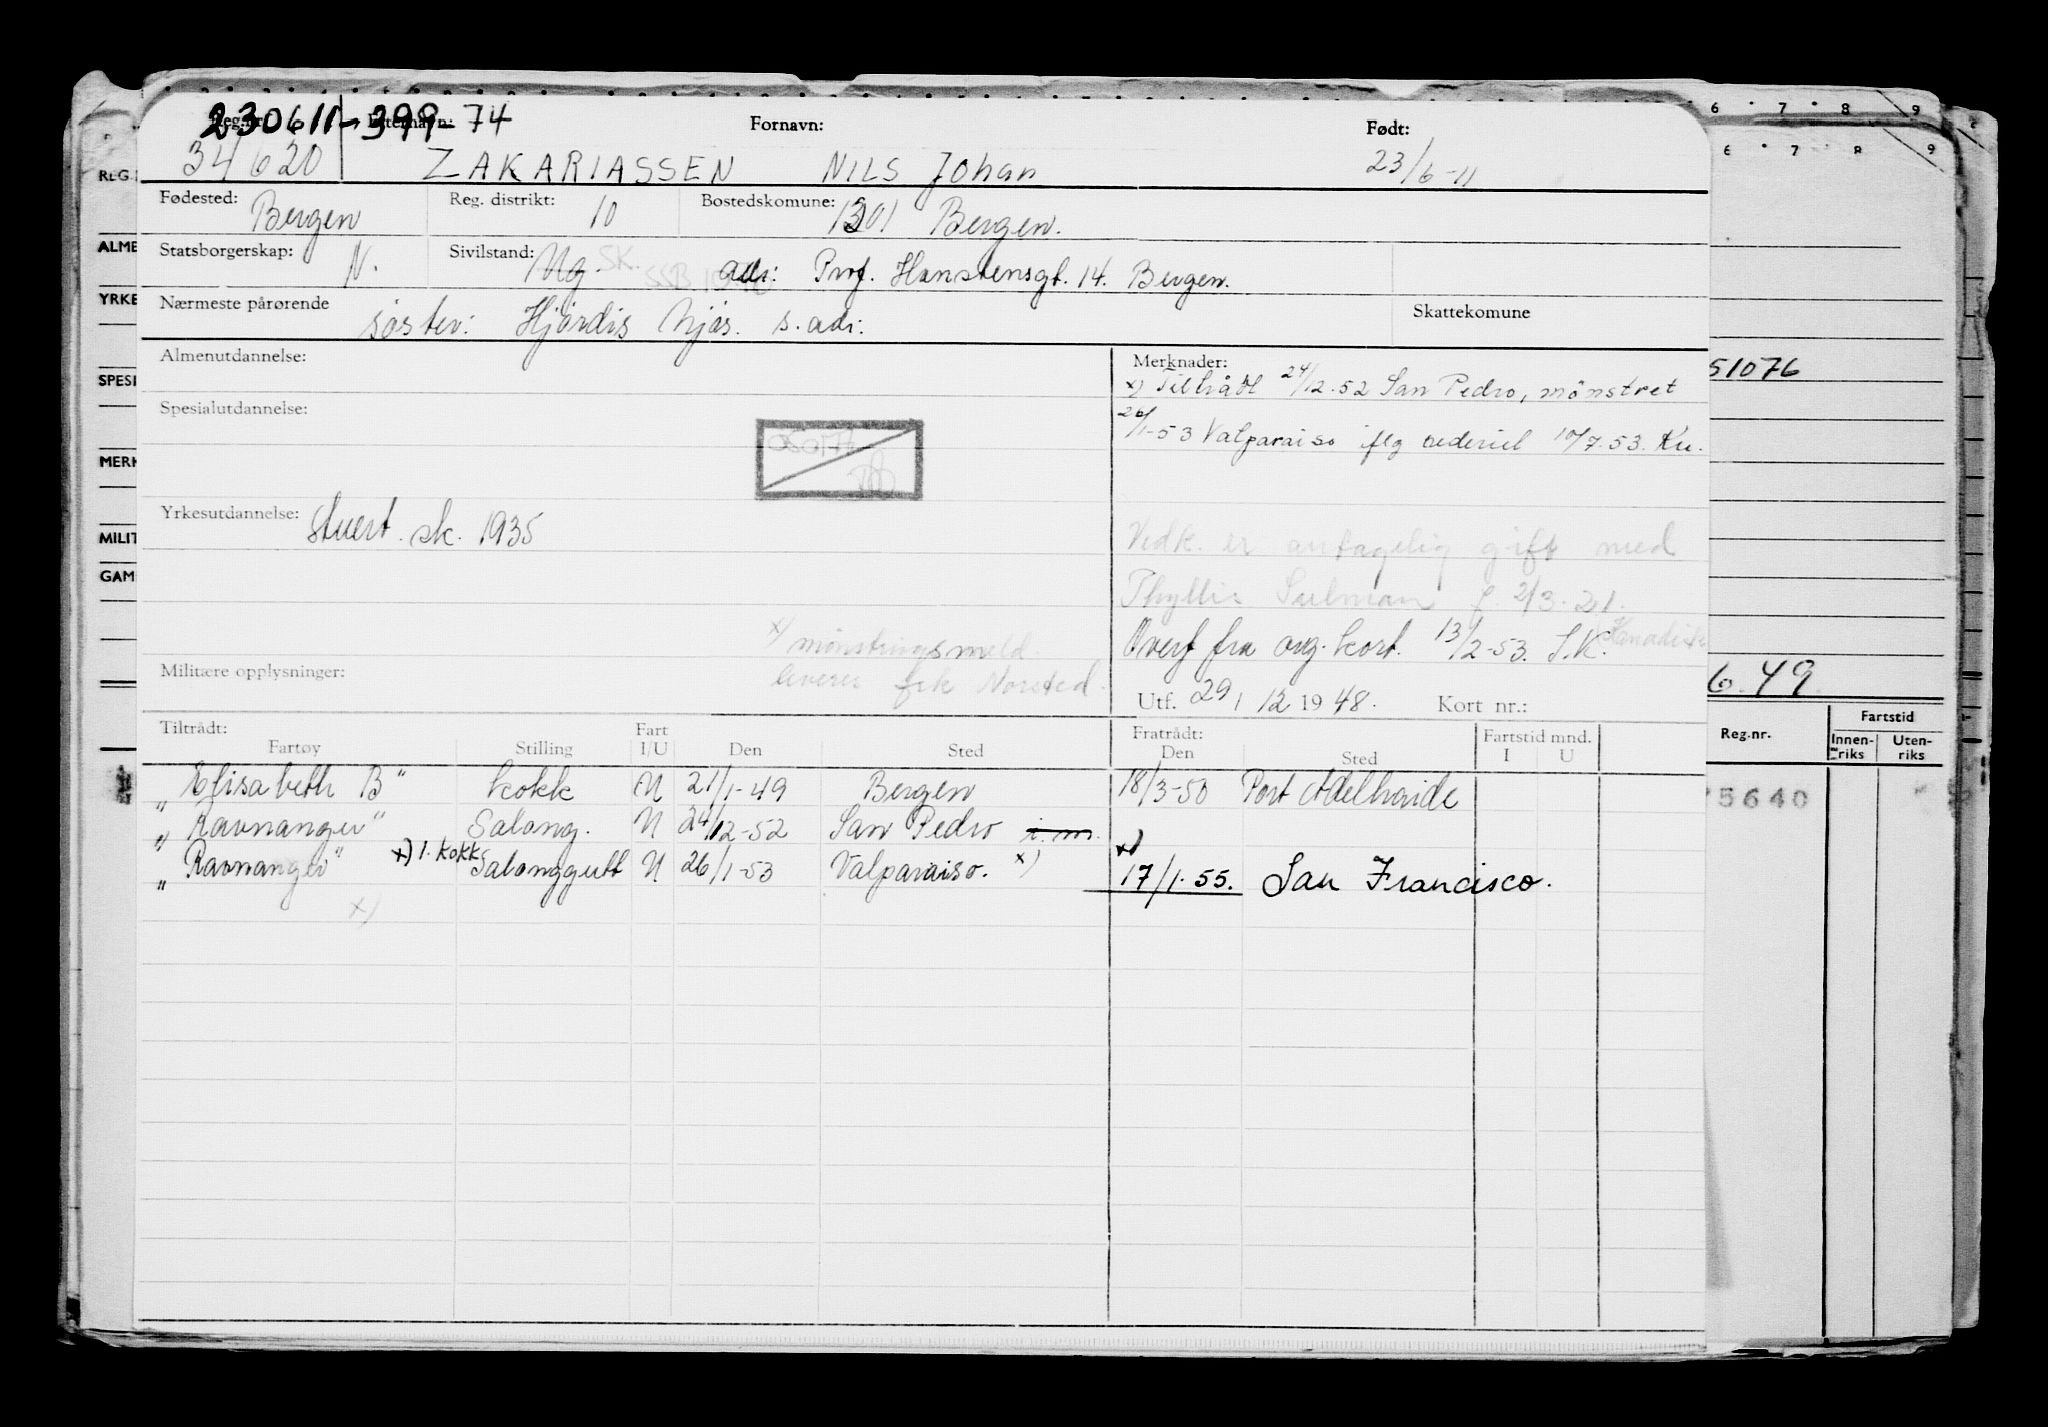 6 7 8 9
230611-399-74
Reg.nr. Etternavn: Fornavn: Født:
34620 ZAKARIASSEN NILS Johan 23/6-11
6 7 8 9
REG.
Fødested: Bergen Reg. distrikt: 10 Bostedskomune: 1301 Bergen.
ALME
Statsborgerskap: N. Sivilstand: Ug. SK. adr: Prof. Hanstensgt. 14. Bergen.
YRKE
Nærmeste pårørende søster: Hjørdis Njøs. s. adr. Skattekomune
Almenutdannelse: Merknader:
x) Tiltrådt 24/12.52 San Pedro, mönstret
51076
SPESI
Spesialutdannelse:
26/1-53 Valparaiso iflg rederiet 10/7.53. Ku.
MERK
Yrkesutdannelse: Stuert. sk. 1935
MILIT
Vedk. er antagelig gift med
GAM
Thyllis Sulman f. 2/3.21.
x) mönstringsmeld. Overf fra org. kort. 13/2-53. S.K.
Militære opplysninger: leveres frk Norsted.
6.49
Utf. 29/12 1948. Kort nr.:
Tiltrådt: Fart Fratrådt: Fartstid mnd.
Fartøy Stilling I/U Den Sted Den Sted I U
Reg.nr. Fartstid
Innen-riks Uten-riks
"Elisabeth B" kokk U 21/1-49 Bergen 18/3-50 Port Adelhaide
5640
"Ravnanger" Salong. U 24/12-52 San Pedro i.m.
"Ravnanger" x) 1. kokk Salonggutt U 26/1-53 Valparaiso. x) x) 17/1.55. San Francisco.
x)